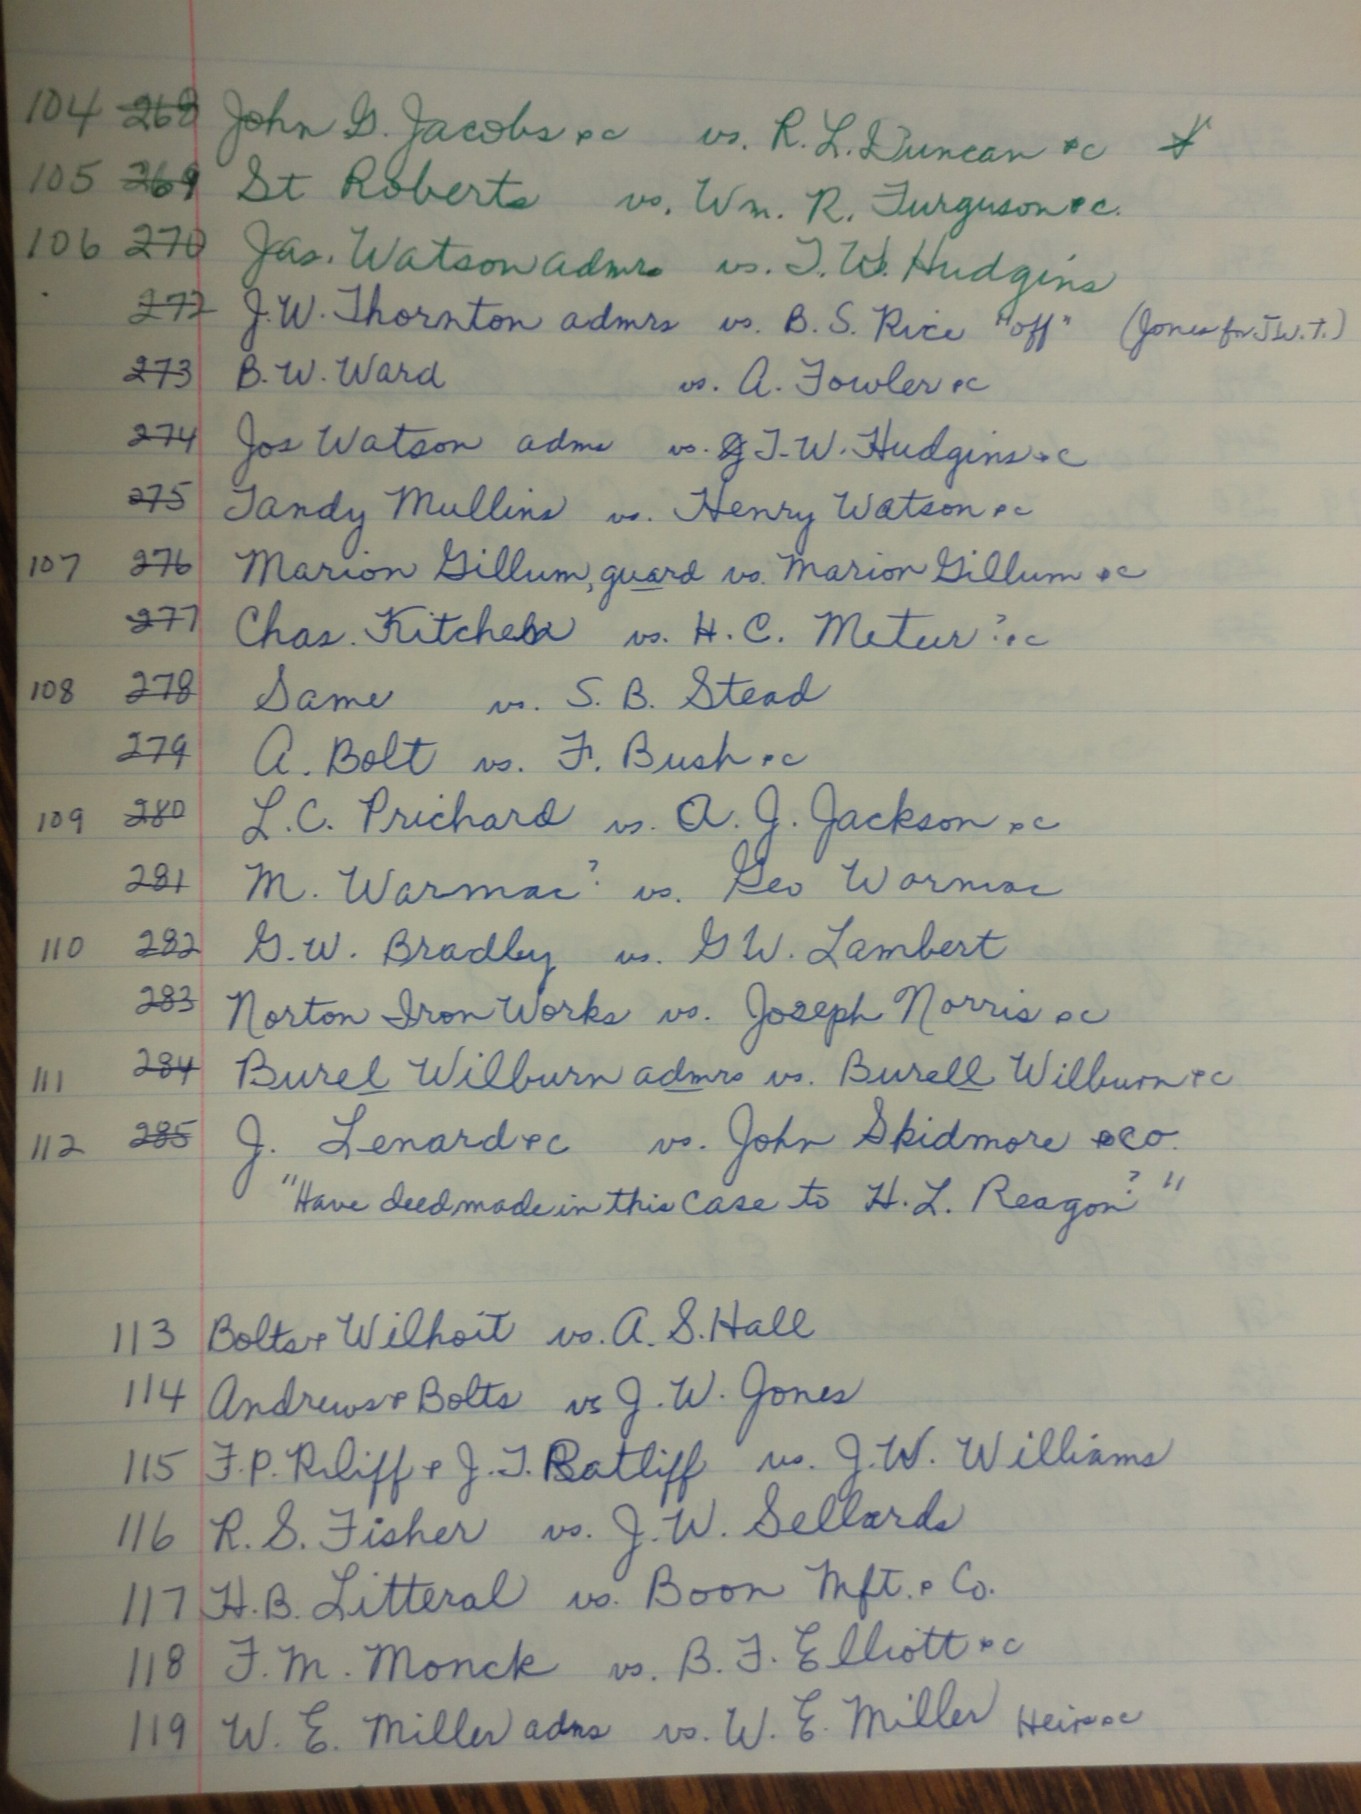 104 268 John G. Jacobs &c vs. R. L. Duncan &c
105 269 St Roberts vs. Wm. R. Furguson &c.
106 270 Jas. Watson admrs vs. T. W. Hudgins
272 J. W. Thornton admrs vs. B. S. Rice "off" (Jones for J.W.T.)
273 B. W. Ward vs. A. Fowler &c
274 Jos Watson adms vs. T. W. Hudgins &c
275 Tandy Mullins vs. Henry Watson &c
107 276 Marion Gillum, guard vs. Marion Gillum &c
277 Chas. Kitchen vs. H. C. Meteer? &c
108 278 Same vs. S. B. Stead
279 A. Bolt vs. F. Bush &c
109 280 L. C. Prichard vs. A. J. Jackson &c
281 M. Warmac? vs. Geo Wormac
110 282 G. W. Bradley vs. G W. Lambert
283 Norton Iron Works vs. Joseph Norris &c
111 284 Burel Wilburn admrs vs. Burell Wilburn &c
112 285 J. Lenard &c vs. John Skidmore & Co.
"Have deed made in this case to H. L. Reagon?"
113 Bolts & Wilhoit vs. A. S. Hall
114 Andrews & Bolts vs J. W. Jones
115 F. P. & J. T. Ratliff vs. J. W. Williams
116 R. S. Fisher vs. J. W. Sellards
117 H. B. Litteral vs. Boon Mft. & Co.
118 F. M. Monck vs. B. F. Elliott &c
119 W. E. Miller adms vs. W. E. Miller Heirs &c